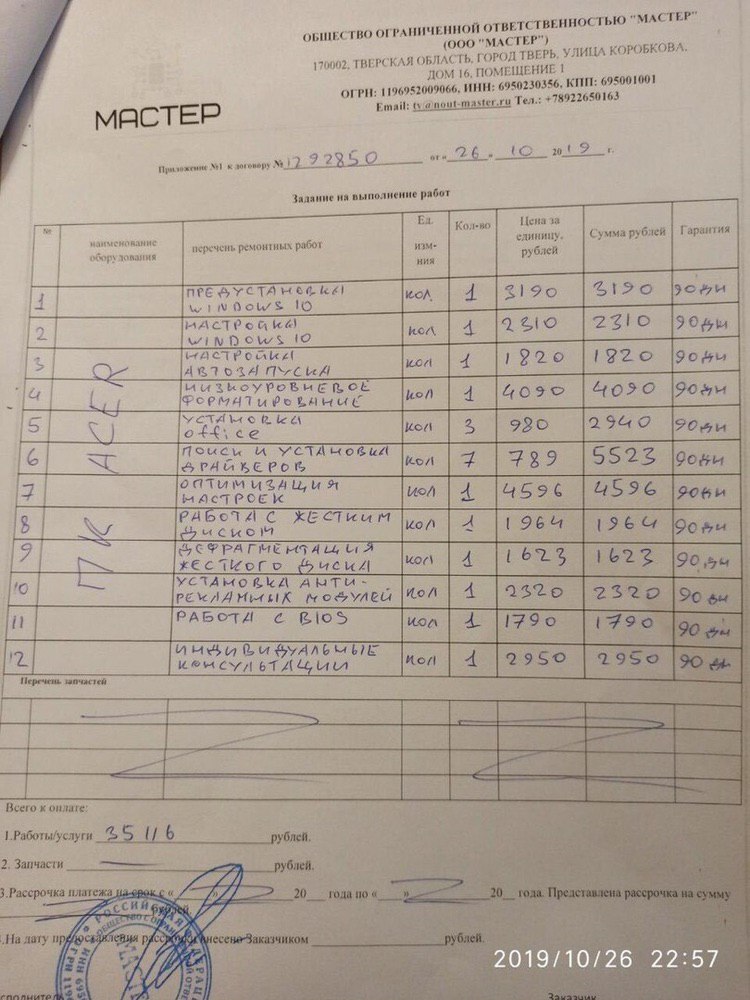 ОБЩЕСТВО ОГРАНИЧЕННОЙ ОТВЕТСТВЕННОСТЬЮ "МАСТЕР"
(ООО "МАСТЕР")
170002, ТВЕРСКАЯ ОБЛАСТЬ, ГОРОД ТВЕРЬ, УЛИЦА КОРОБКОВА,
ДОМ 16, ПОМЕЩЕНИЕ 1
ОГРН: 1196952009066, ИНН: 6950230356, КПП: 695001001
Email: tv@nout-master.ru Тел.: +78922650163
МАСТЕР
Приложение №1 к договору № 1292850 от «26» 10 2019 г.
Задание на выполнение работ
№ наименование оборудования перечень ремонтных работ Ед. изм-ния Кол-во Цена за единицу, рублей Сумма рублей Гарантия
ПК ACER
1 ПРЕДУСТАНОВКА WINDOWS 10 кол. 1 3190 3190 90дн
2 НАСТРОЙКА WINDOWS 10 кол 1 2310 2310 90дн
3 НАСТРОЙКА АВТОЗАПУСКА кол 1 1820 1820 90дн
4 НИЗКОУРОВНЕВОЕ ФОРМАТИРОВАНИЕ кол 1 4090 4090 90дн
5 УСТАНОВКА office кол 3 980 2940 90дн
6 ПОИСК И УСТАНОВКА ДРАЙВЕРОВ кол 7 789 5523 90дн
7 ОПТИМИЗАЦИЯ НАСТРОЕК кол 1 4596 4596 90дн
8 РАБОТА С ЖЕСТКИМ ДИСКОМ кол 1 1964 1964 90дн
9 ДЕФРАГМЕНТАЦИЯ ЖЕСТКОГО ДИСКА кол 1 1623 1623 90дн
10 УСТАНОВКА АНТИ-РЕКЛАМНЫХ МОДУЛЕЙ кол 1 2320 2320 90дн
11 РАБОТА С BIOS кол 1 1790 1790 90дн
12 ИНДИВИДУАЛЬНЫЕ КОНСУЛЬТАЦИИ кол 1 2950 2950 90дн
Перечень запчастей
Всего к оплате:
1.Работы/услуги 35116 рублей.
2. Запчасти рублей.
3.Рассрочка платежа на срок с « » 20 года по « » 20 года. Представлена рассрочка на сумму
рублей
.На дату предоставления рассрочки внесено Заказчиком рублей.
2019/10/26 22:57
Заказчик